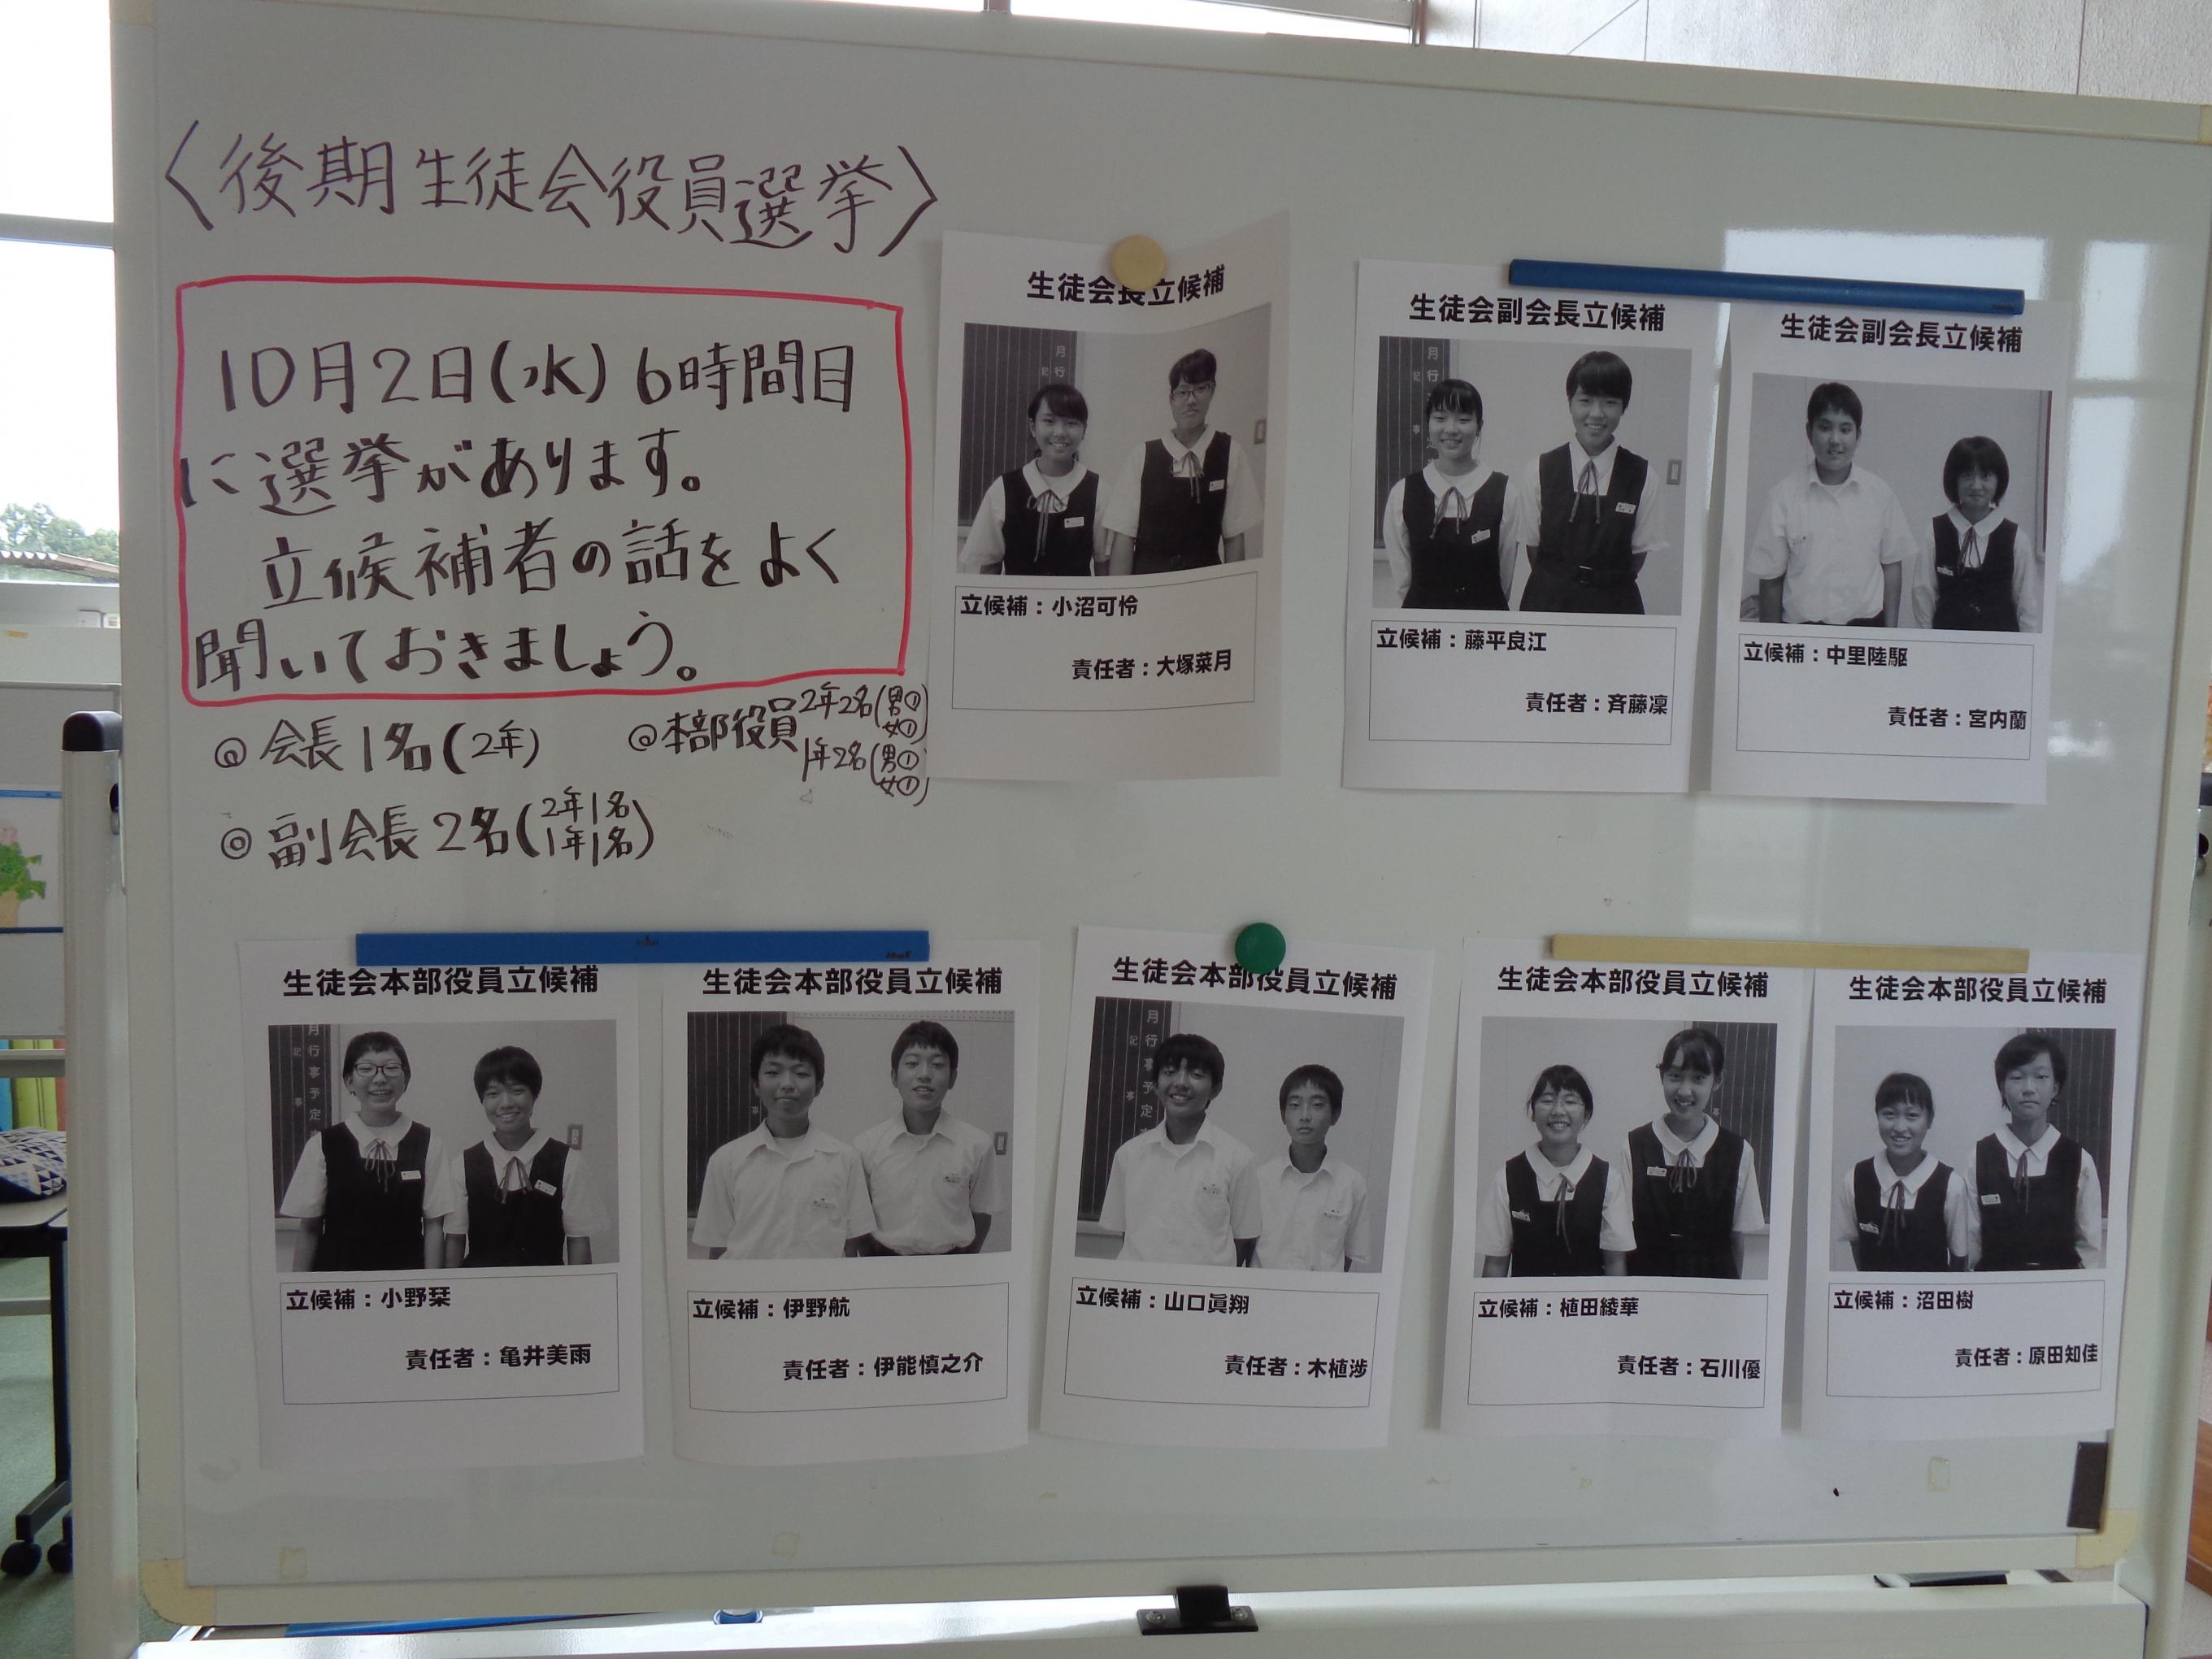 〈後期生徒会役員選挙〉
10月2日(水)6時間目
に選挙があります。
立候補者の話をよく
聞いておきましょう。
◎会長1名(2年)
◎副会長2名(2年1名
1年1名)
◎本部役員2年2名(男①
女①)
1年2名(男①
女①)
生徒会長立候補
月行
記
立候補：小沼可怜
責任者：大塚菜月
生徒会副会長立候補
月行
記
事
立候補：藤平良江
責任者：斉藤凜
生徒会副会長立候補
立候補：中里陸駆
責任者：宮内蘭
生徒会本部役員立候補
月行事予定
記事
立候補：小野栞
責任者：亀井美雨
生徒会本部役員立候補
立候補：伊野航
責任者：伊能慎之介
生徒会本部役員立候補
月行事予定
記事
立候補：山口眞翔
責任者：木植渉
生徒会本部役員立候補
立候補：植田綾華
責任者：石川優
生徒会本部役員立候補
立候補：沼田樹
責任者：原田知佳